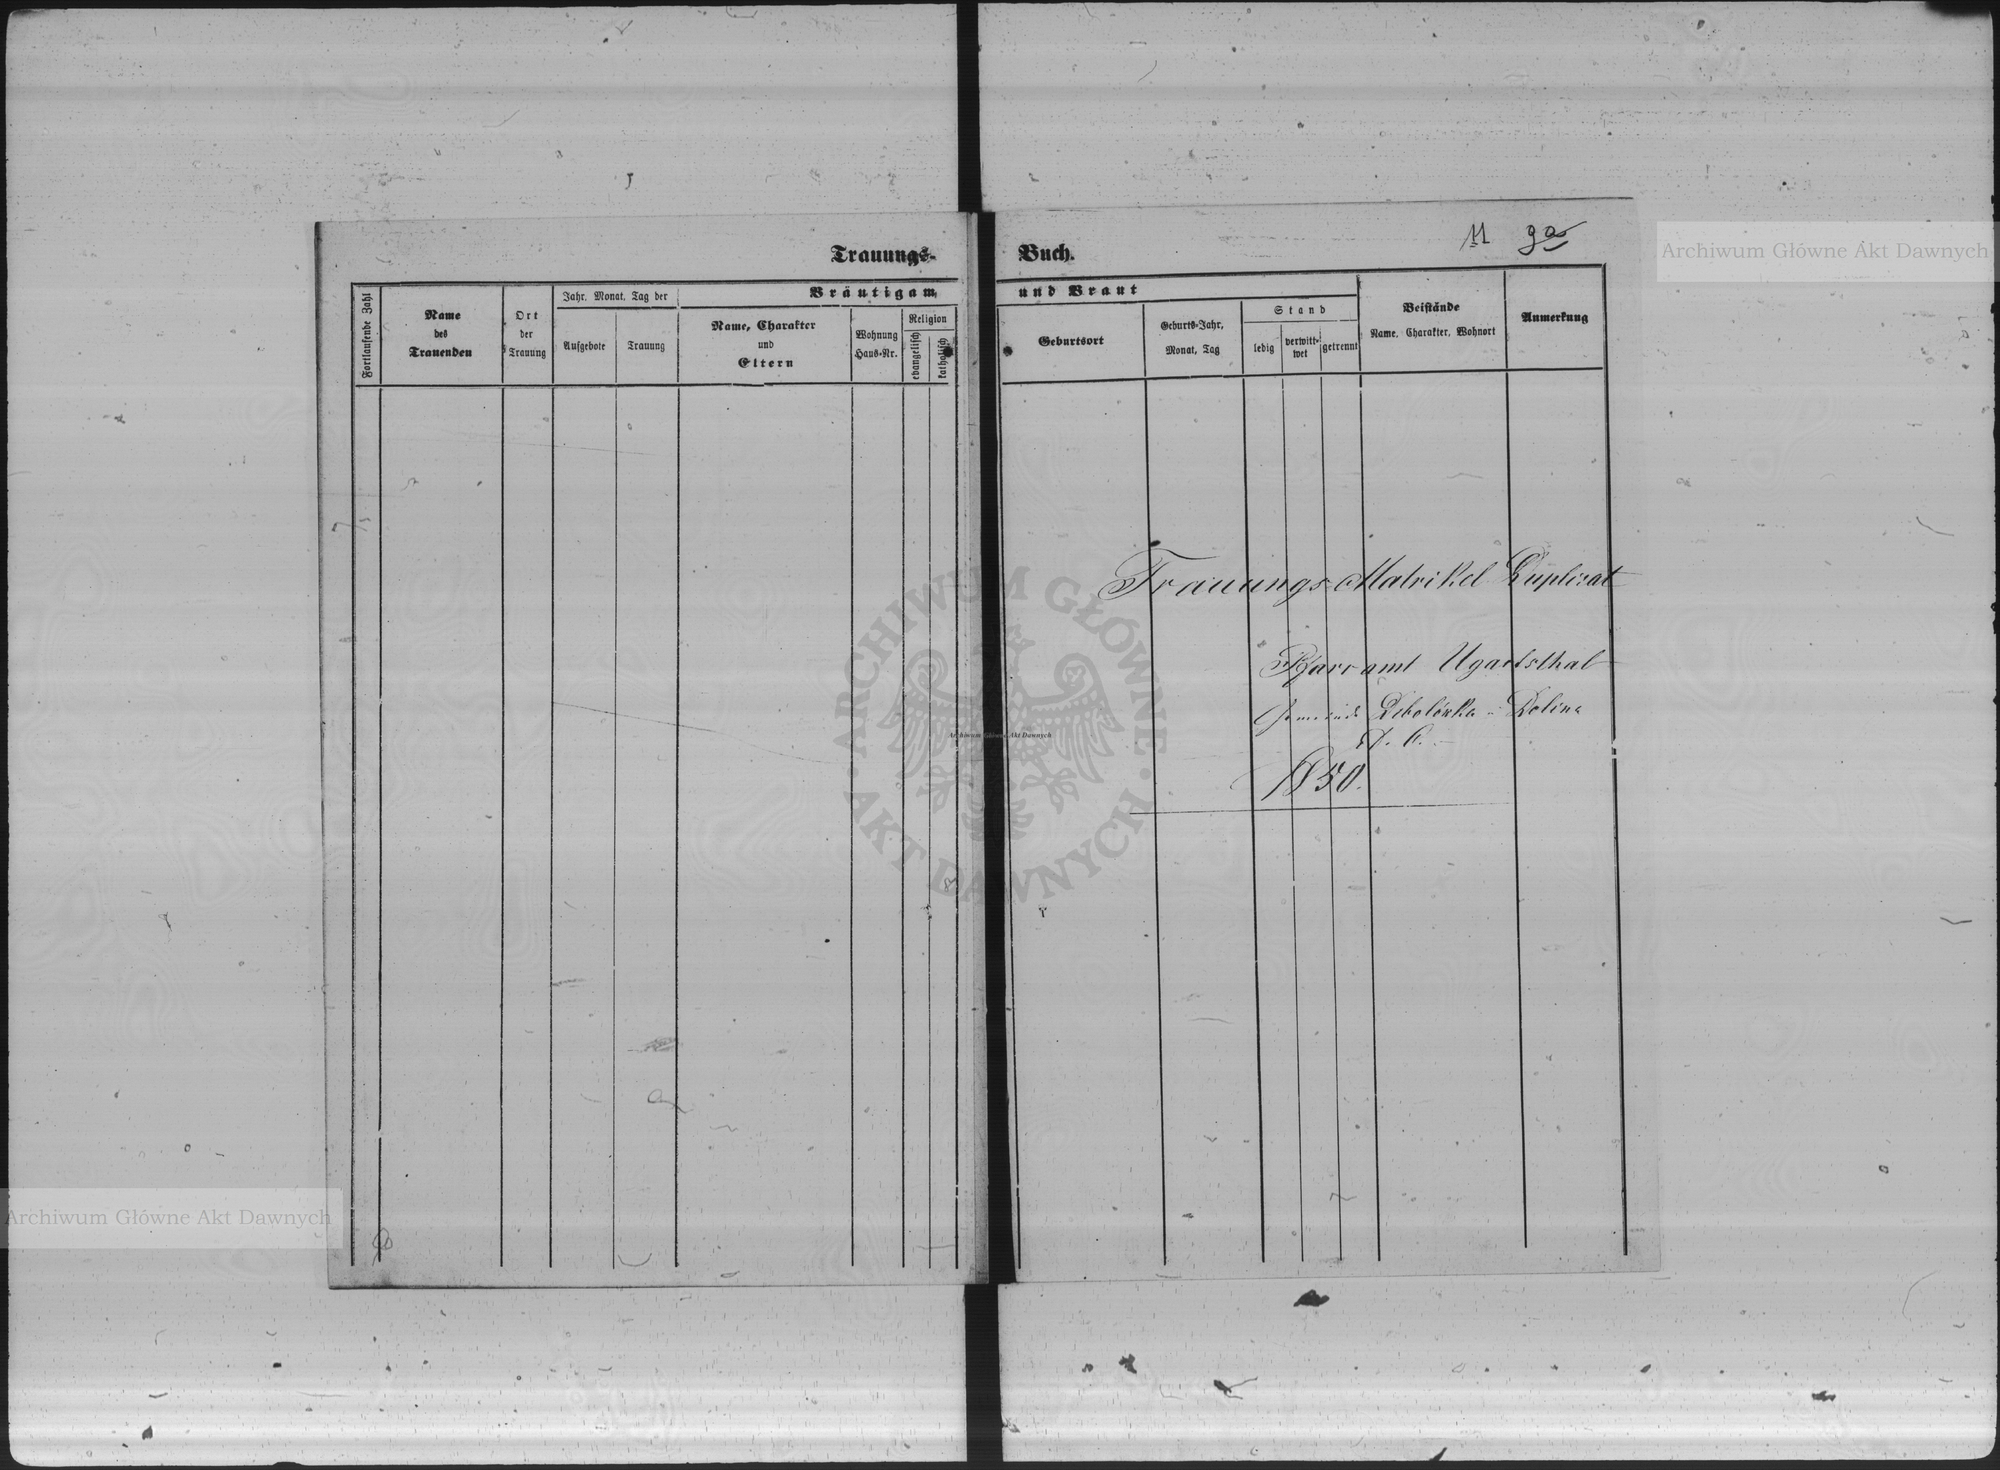 Trauungs-
Fortlaufende Zahl
Name
des
Trauenden
Ort
der
Trauung
Jahr, Monat, Tag der
Aufgebote
Trauung
Bräutigam
Name, Charakter
und
Eltern
Wohnung
Haus-Nr.
Religion
evangelisch
katholisch
Buch.
11
und Braut
Geburtsort
Geburts-Jahr,
Monat, Tag
Stand
ledig
verwitt-
wet
getrennt
Beistände
Name, Charakter, Wohnort
Anmerkung
Trauungs-Matrikel Duplicat
Pfarramt Ugartsthal
Gemeinde Debolówka - Dolina
A. C.
1850.
Archiwum Główne Akt Dawnych
Archiwum Główne Akt Dawnych
Archiwum Główne Akt Dawnych
ARCHIWUM GŁÓWNE
AKT DAWNYCH